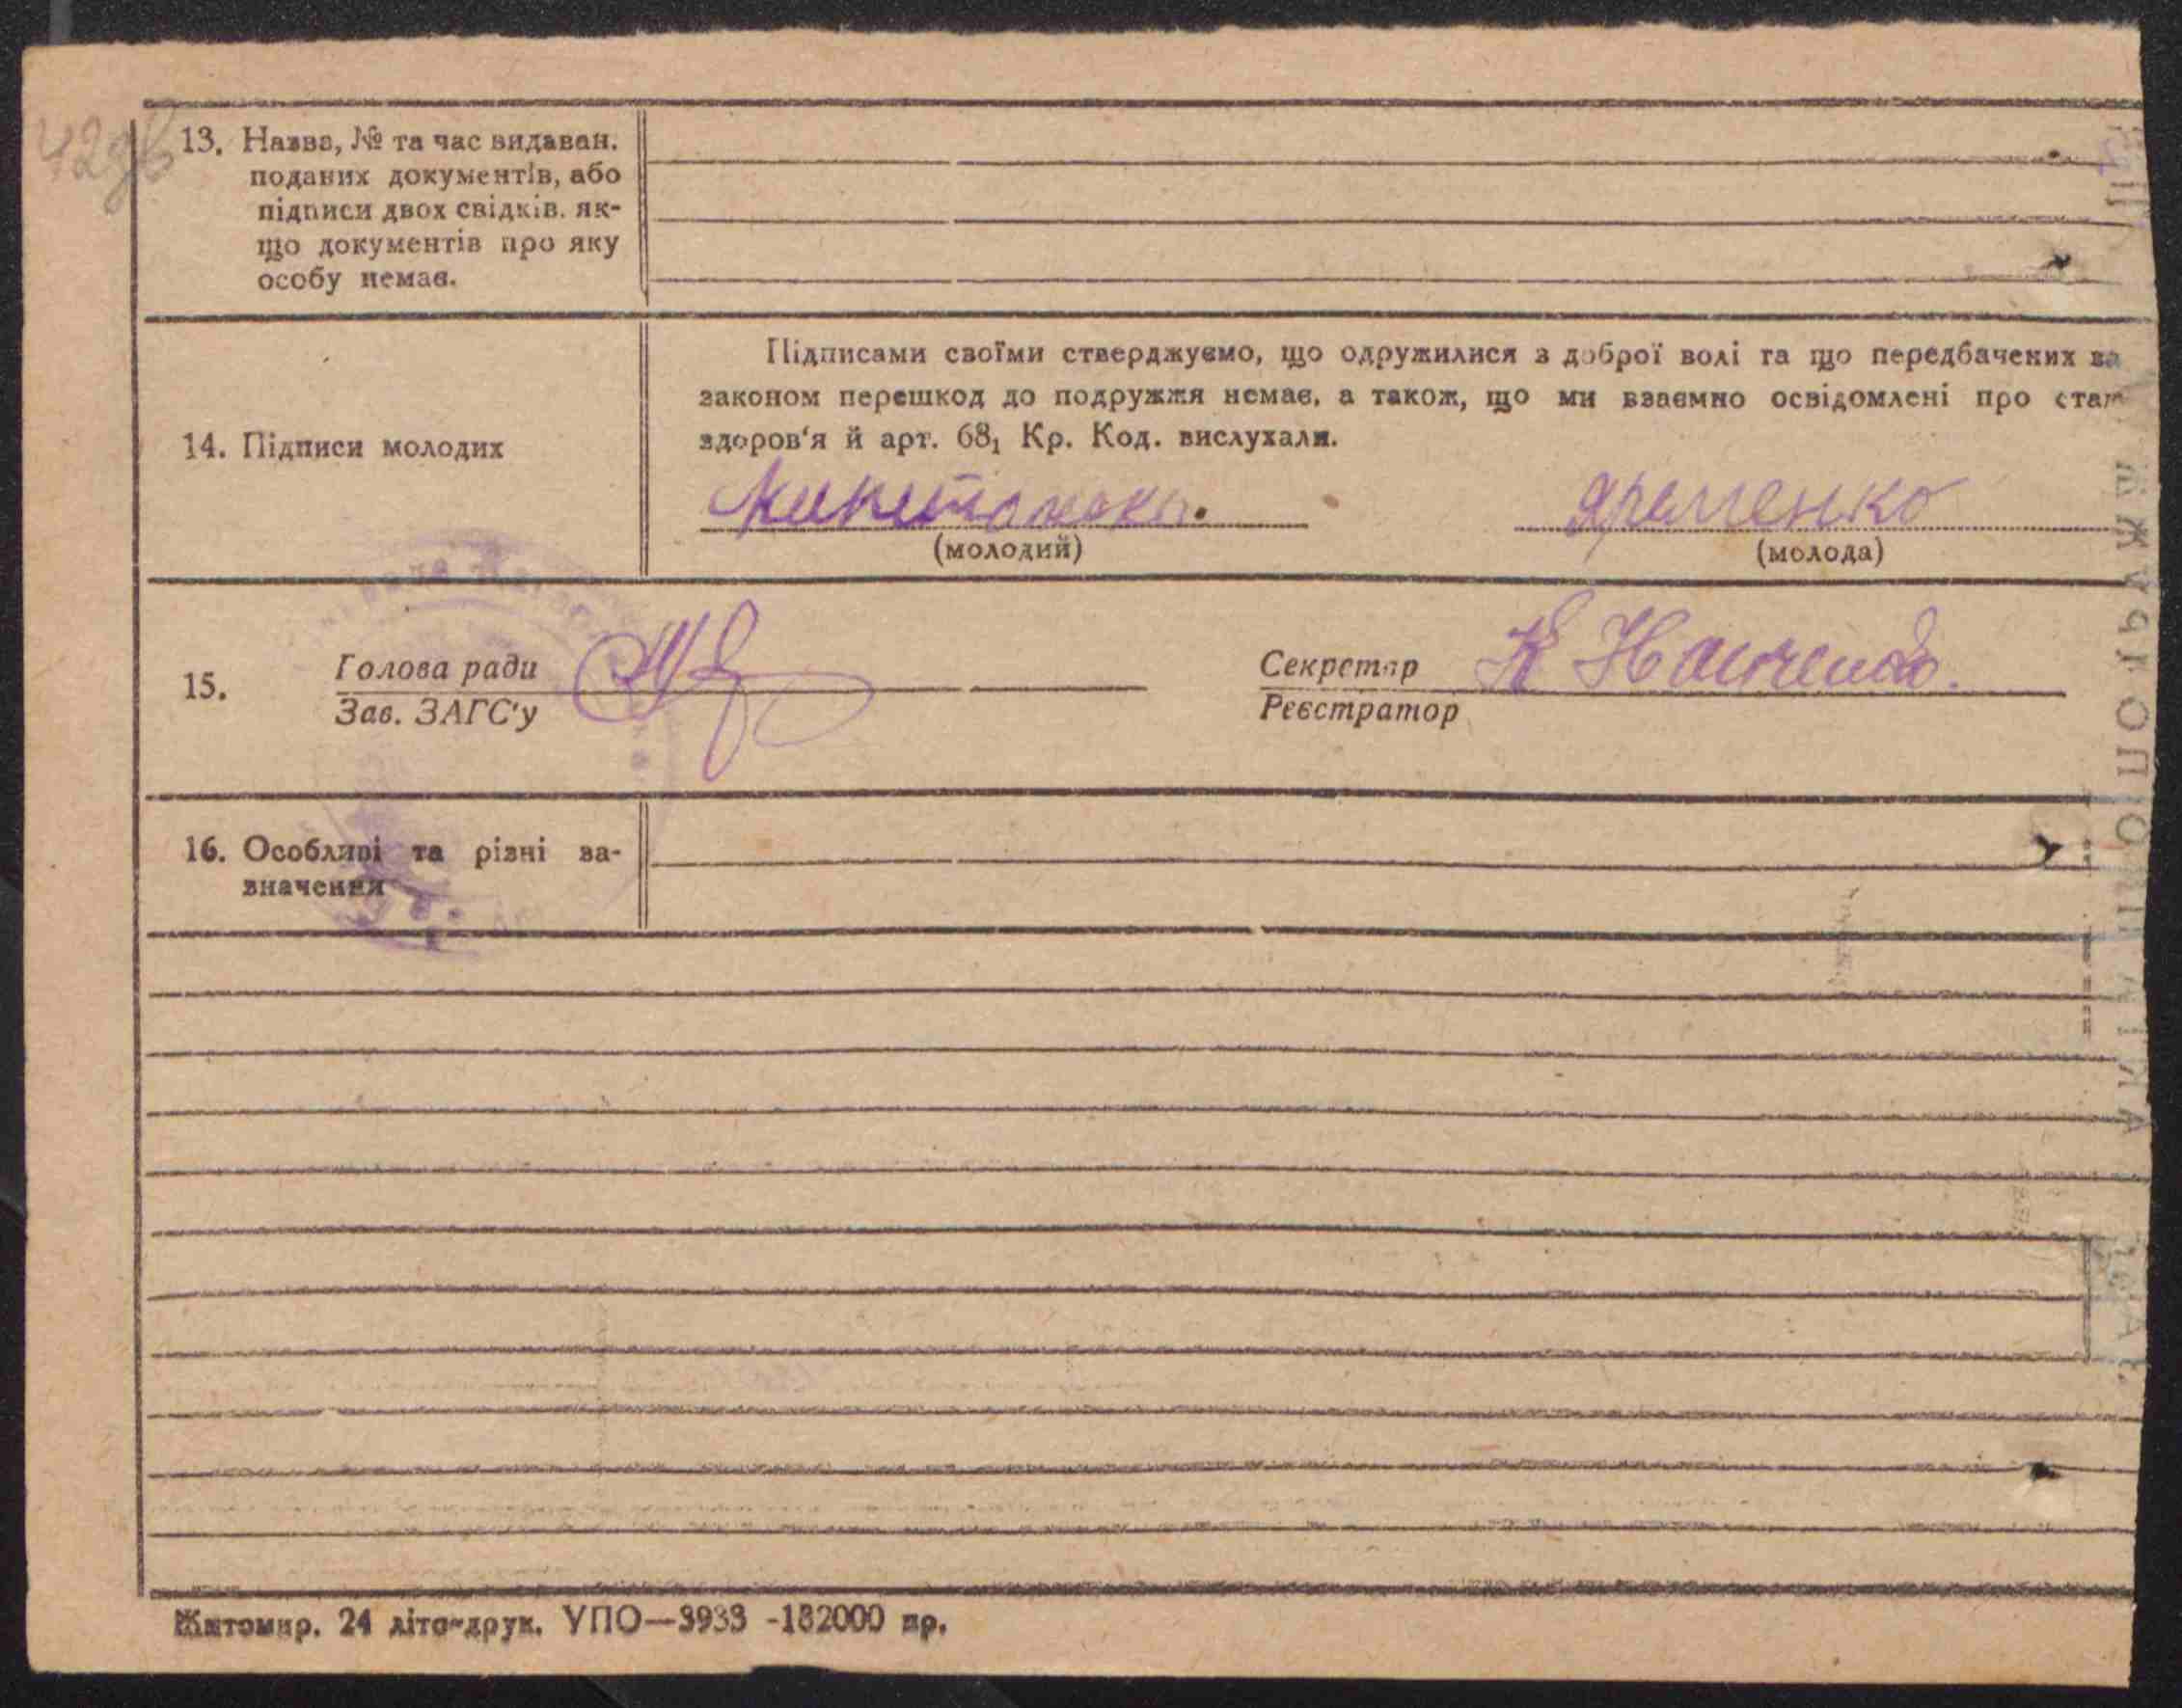 42зв
13. Назва, № та час видаван.
поданих документів, або
підписи двох свідків, як-
що документів про яку
особу немає.
Підписами своїми стверджуємо, що одружилися з доброї волі та що передбачених за
законом перешкод до подружжя немає, а також, що ми взаємно освідомлені про стан
здоров'я й арт. 68₁ Кр. Код. вислухали.
14. Підписи молодих
Яременко
(молодий) (молода)
15. Голова ради Секретар
Зав. ЗАГС'у Реєстратор
16. Особливі та різні за-
значення
Житомир. 24 літо-друк. УПО—3933 -182000 пр.